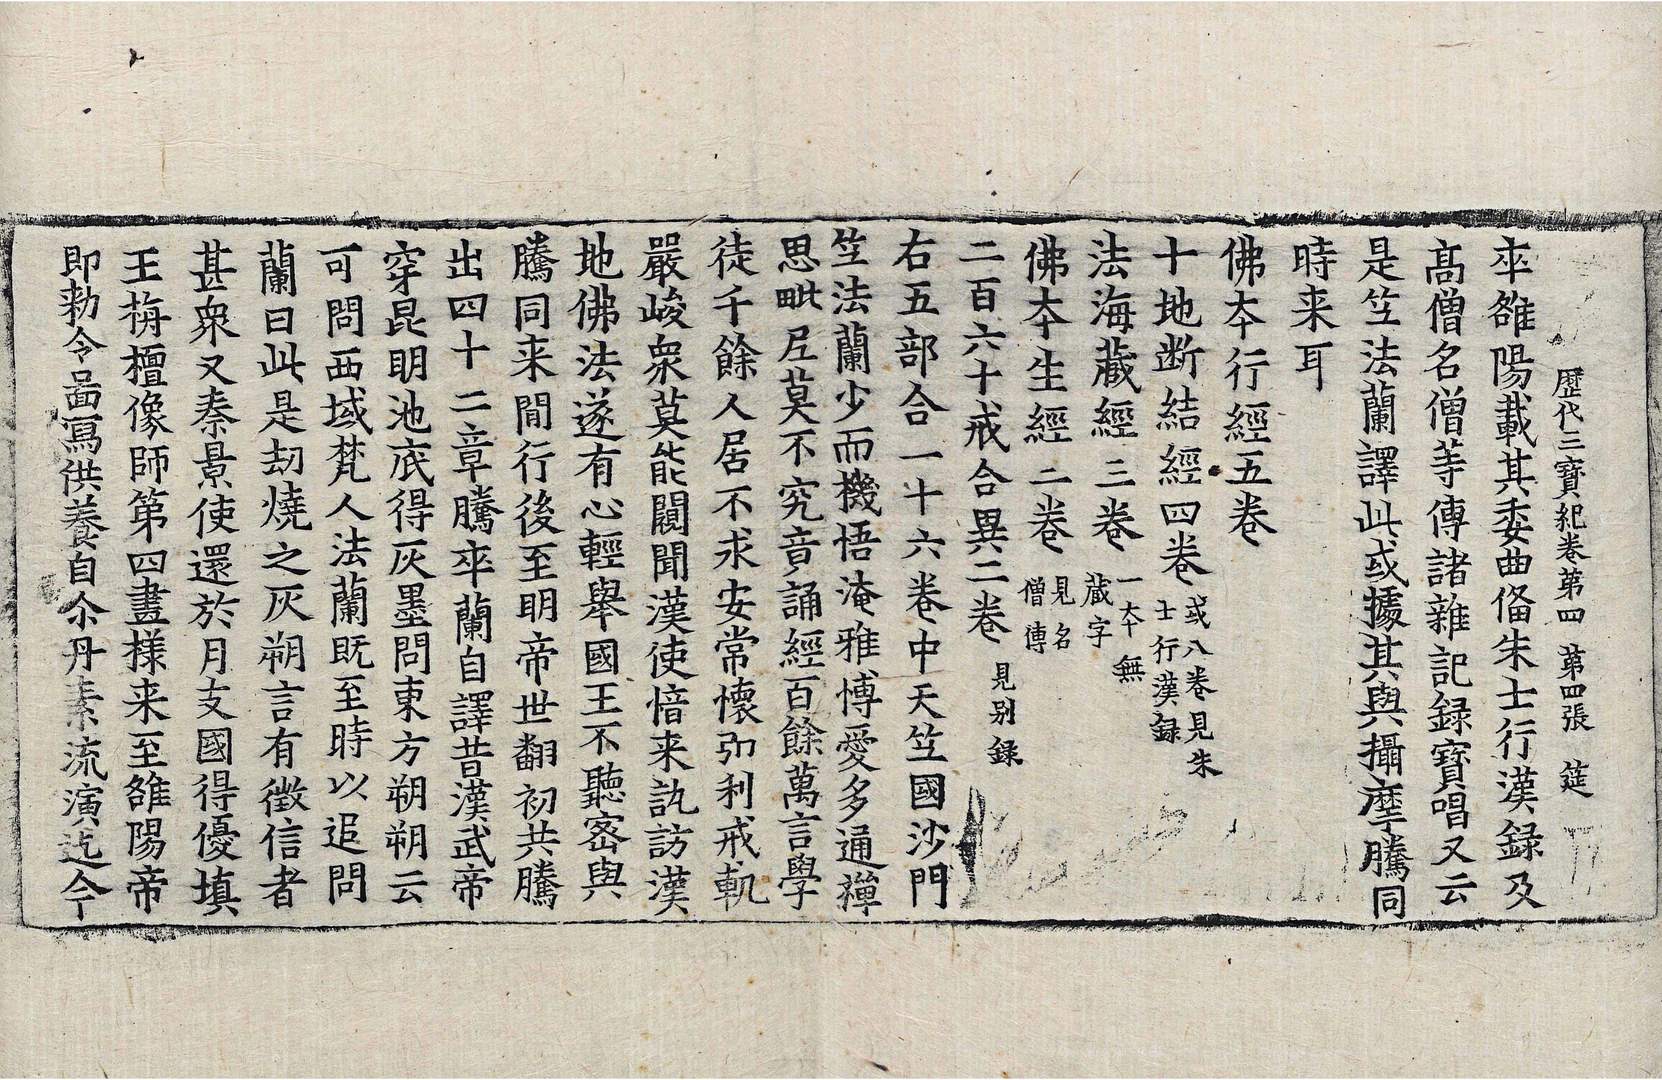 歷代三寶紀卷第四 第四張 筵
卒雒陽載其委曲俻朱士行漢録及
髙僧名僧等傳諸雜記録寶唱又云
是笁法蘭譯此或據其與攝摩騰同
時来耳
佛夲行經五卷
十地断結經四卷 或八卷見朱士行漢録
法海藏經三卷 一夲無藏字
佛夲生經二卷 見名僧傳
二百六十戒合異二卷 見别録
右五部合一十六卷中天笁國沙門
笁法蘭少而機悟淹雅博愛多通禪
思毗尼莫不究音誦經百餘萬言學
徒千餘人居不求安常懷弘利戒軌
嚴峻衆莫能闚聞漢使愔来訪訪漢
地佛法遂有心輕舉國王不聽宻與
騰同来間行後至明帝世翻初共騰
出四十二章騰卒蘭自譯昔漢武帝
穿昆明池底得灰墨問東方朔朔云
可問西域梵人法蘭既至時以追問
蘭曰此是劫燒之灰朔言有徵信者
甚衆又秦景使還於月支國得優填
王栴檀像師第四畫様来至雒陽帝
即勑令啚寫供養自尒丹素流演迄今